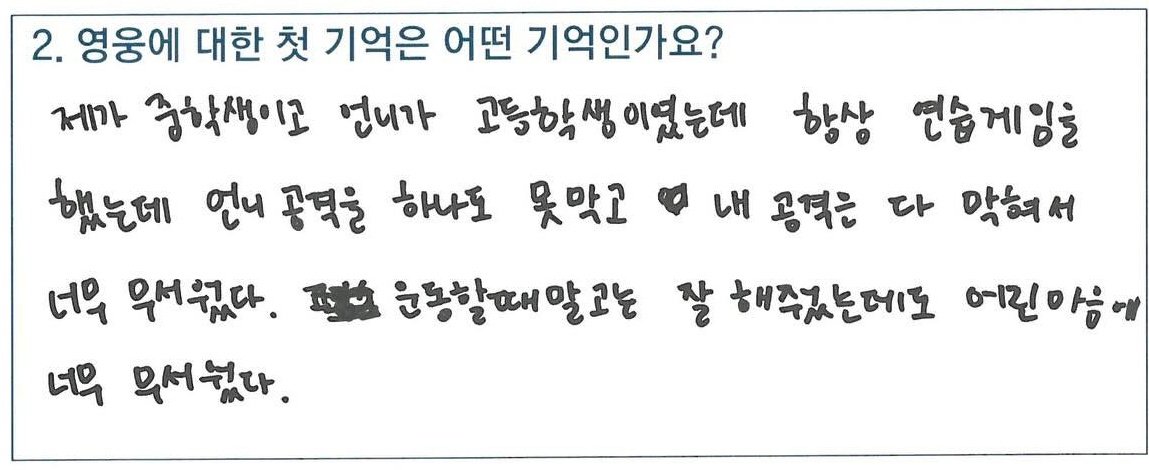 2. 영웅에 대한 첫 기억은 어떤 기억인가요?
제가 중학생이고 언니가 고등학생이였는데 항상 연습게임을
했는데 언니 공격을 하나도 못막고 내 공격은 다 막혀서
너무 무서웠다. 운동할때말고는 잘 해주셨는데도 어린마음에
너무 무서웠다.